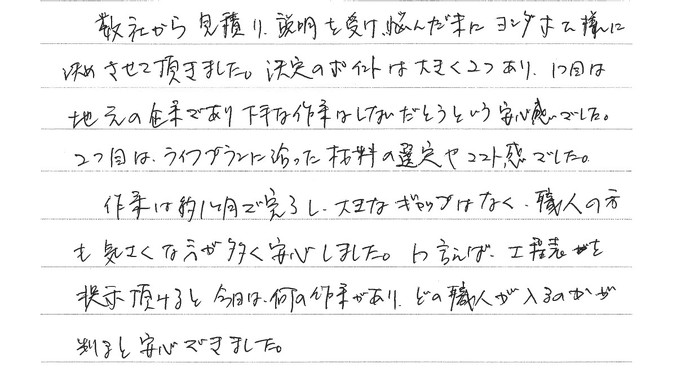 数社から見積り、説明を受け、悩んだ末にヨシダホーム様に
決めさせて頂きました。決定のポイントは大きく2つあり、1つ目は
地元の企業であり下手な作業はしないだろうという安心感でした。
2つ目は、ライフプランに沿った材料の選定やコスト感でした。
作業は約1ヶ月で完了し、大きなギャップはなく、職人の方
も気さくな方が多く安心しました。 言えば、工程表を
提示頂けると今日は、何の作業があり、どの職人が入るのかが
判ると安心できました。